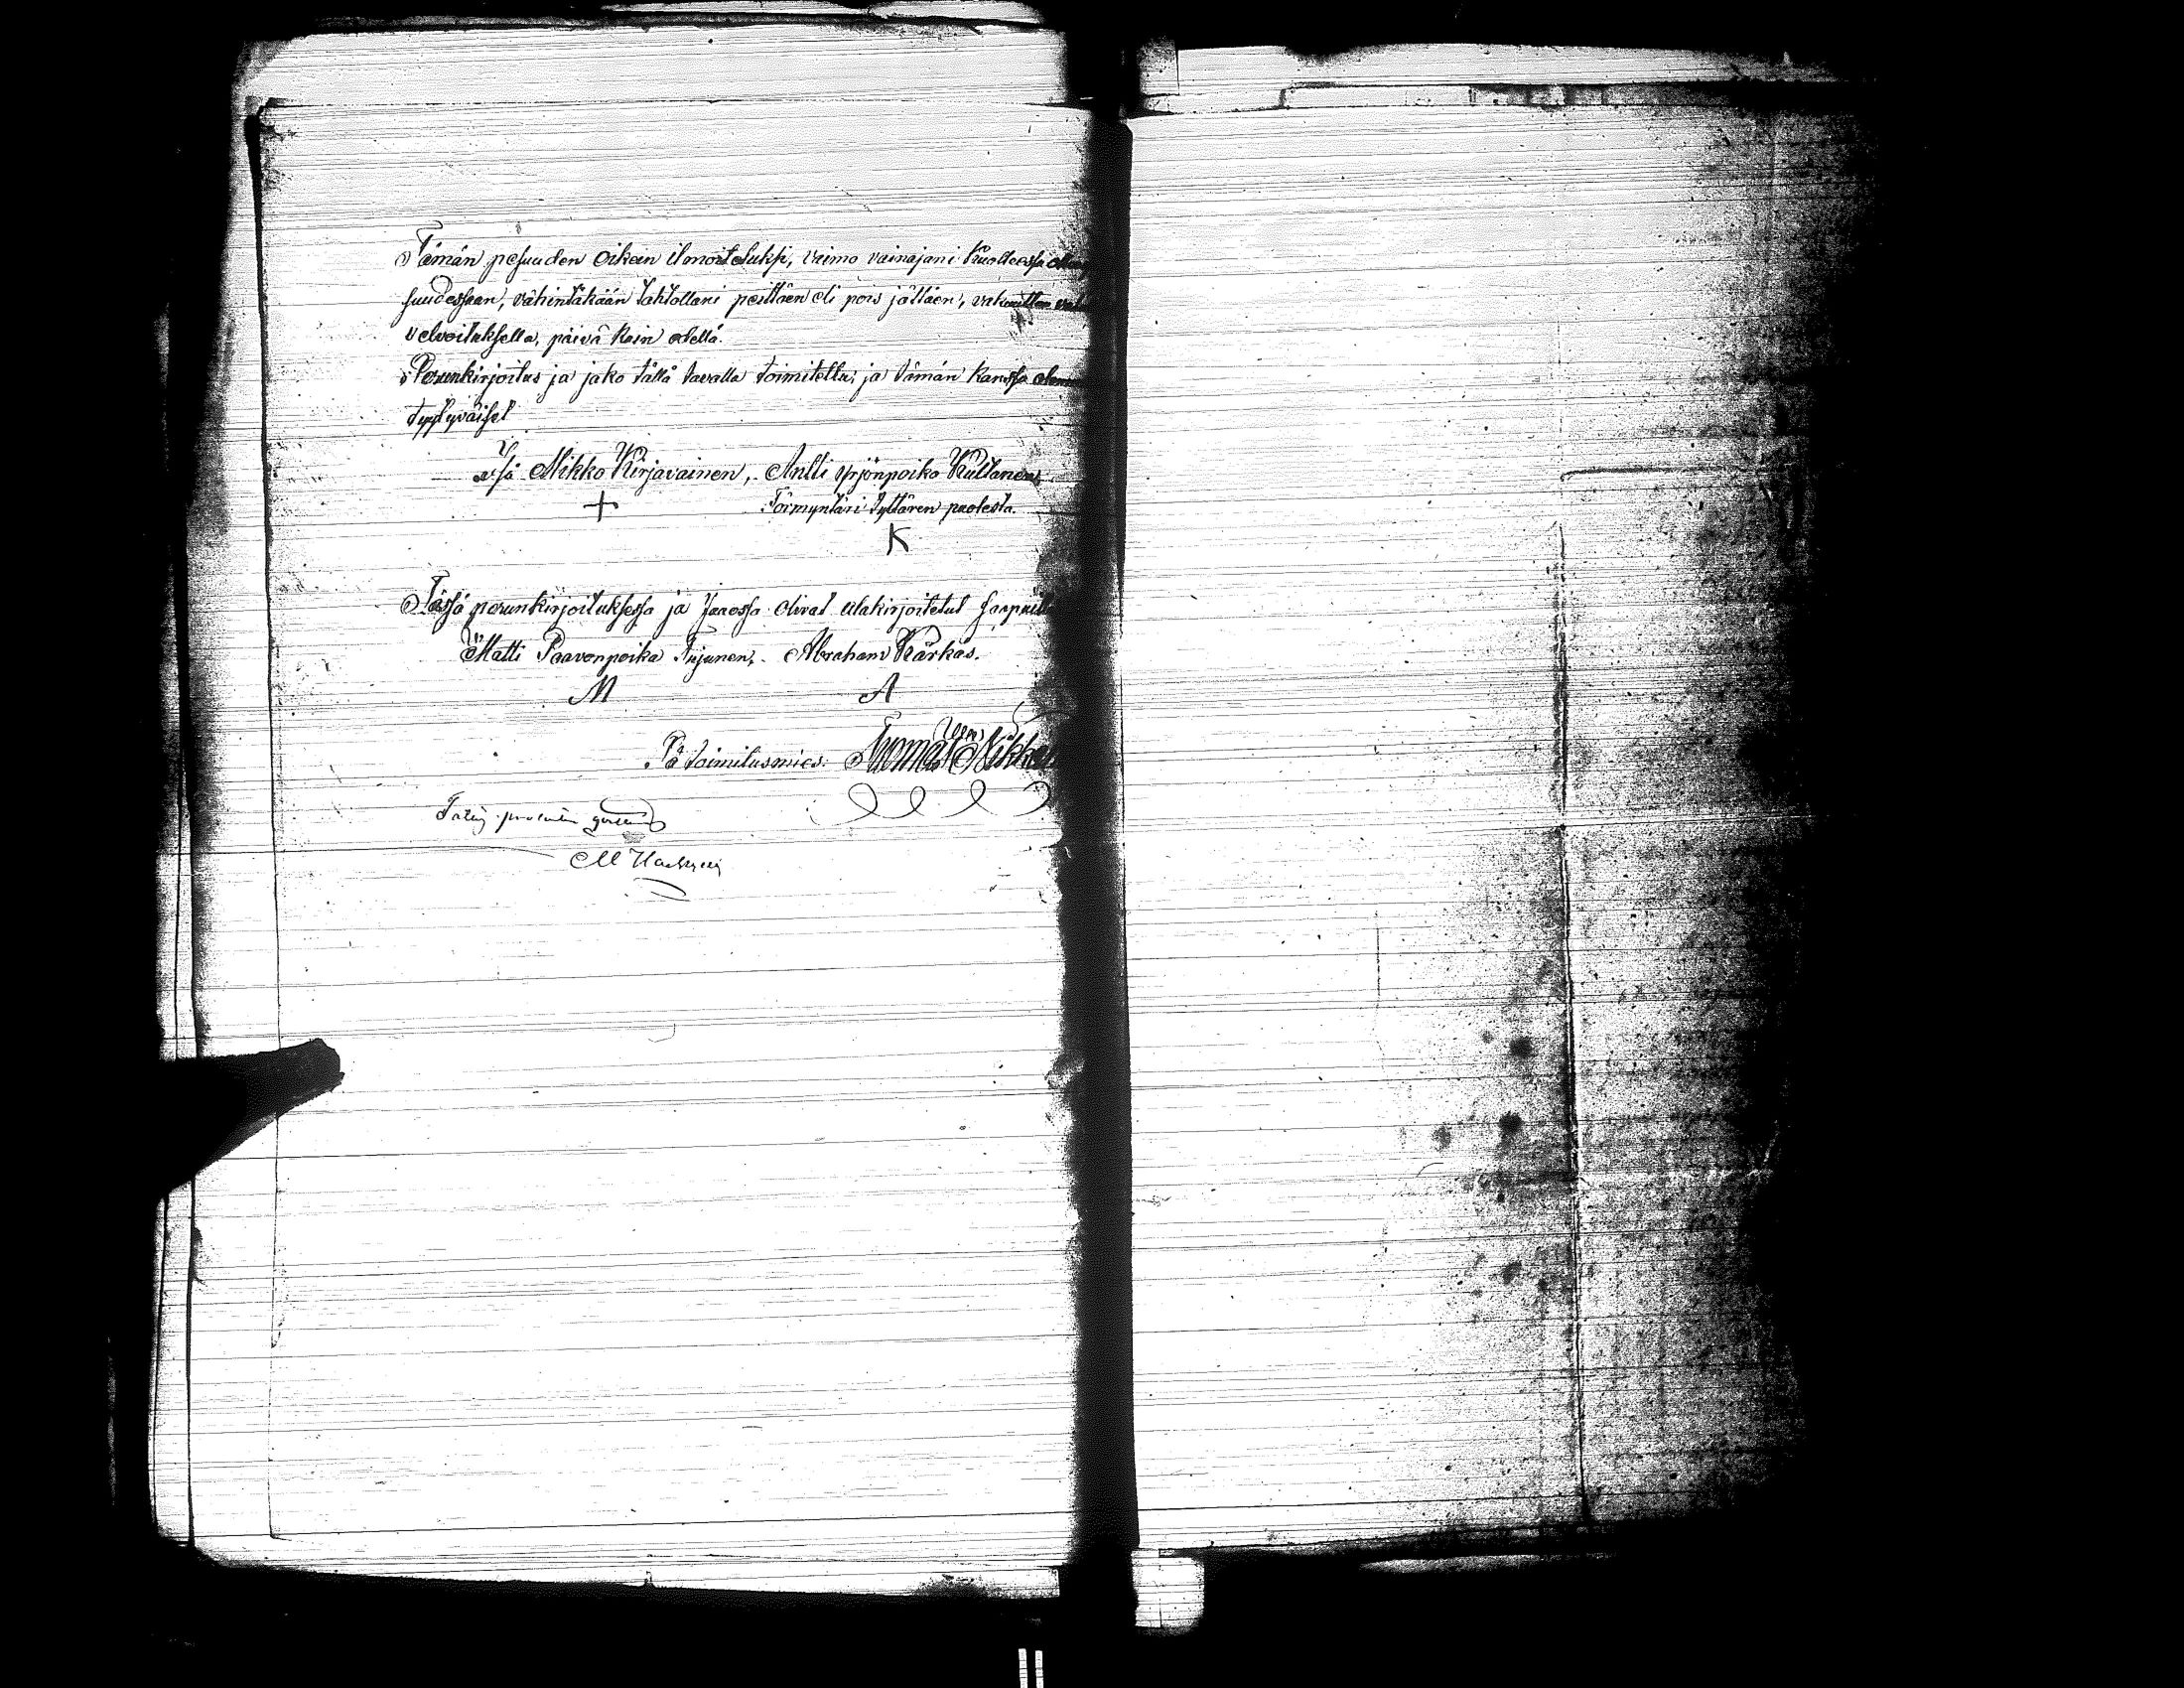 Tämän pesuuden oikein ilmoitetuksi, vaimo vainajani kuolleessa
suudessaan, vähintäkään tahtollani peittäen eli pois jättäen, vakuuttaa
velvoituksella, päivä kuin edellä.
Perunkirjoitus ja jako tällä tavalla toimitettu; ja tämän kanssa olemme
tyytyväiset
Isä Mikko Kirjavainen, Antti Yrjönpoika Kultanen,
+ Förmyntäri tyttären puolesta.
K
Tässä perunkirjoituksessa ja jaossa olivat alakirjoitetut saapuilla
Matti Paavonpoika Tiijanen, Abraham Kärkäs.
M A
Pä toimitusmies: Tuomas